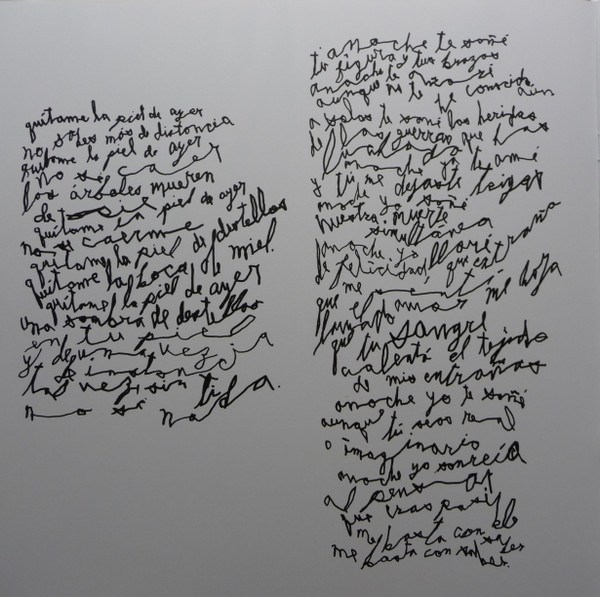 quítame la piel de ayer
no sabes más de distancia
súbame la piel de ayer
no sé caer
los árboles mueren
de pie
quítame la piel de ayer
no sé caerme
quítame la piel de destellos
quítame la boca de miel.
quítame la piel de ayer
una sombra de destellos
en tu piel
y de una vez
distancia
tal vez, sin ti
no sé nada.
anoche te soñé
tu figura y tus brazos
anoche te
aunque no te conocido aún
a solas te soñé los heridas
de las guerras que has
anoche yo te amé
y tú me dejaste
anoche yo soñé
nuestra muerte
simultánea
anoche yo lloré
de felicidad, que extraña
me sentí
que el amor me
que tu sangre
calentó el tejido
de mis entrañas
anoche yo te soñé
aunque tú seas real
o imaginario
anoche yo sonreía
al pensar
que eras
me basta con
me basta con saber.